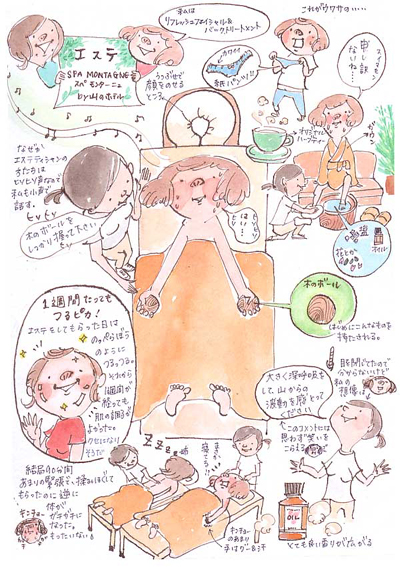 エステ
SPA MONTAGNE
スパ モンターニュ
by 山のホテル
私は
リフレッシュフェイシャル&
バークトリートメント
うつぶせで
顔をのせる
ところ
これがウワサの‥‥
カワイイ
紙パンツ!!
スイマセン
申し訳
ないな
オリジナル
ハーブティー
なぜか
エステティシャンの
かたたちは
ヒソヒソ声なので
私も小声で
話す。
ヒソヒソ
木のボールを
しっかり握って下さい
はい‥
塩
花とか
オイル
木のボール
はじめにこんなものを
持たされる。
1週間たっても
つるピカ!
エステをしてもらった日は
のっぺらぼう
のように
つるつる。
それから
1週間
経っても
肌の調子が
よかった。
クセになり
そうだ
目を閉じてたので
分からないけど
私の
想像
大きく深呼吸を
して、山からの
波動を感じとって
ください
このコメントには
思わず笑いを
こらえる
ZZZ
姉
まさか
寝てる?
結局90分間
あまりの緊張で、揉みほぐして
もらったのに逆に
体が
ガチガチに
なった。
もったいない!
キンチョー
キンチョー
のあまり
手はグー&汗
OIL
とても良い香りが広がる